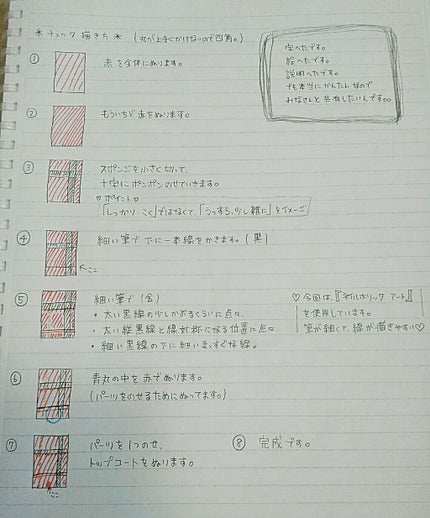 *チェック描き方* (丸が上手くかけないので四角。)
字へたです。
絵へたです。
説明へたです。
でも本当にかんたんなので
みなさんと共有したいんです。。
① 赤を全体にぬります。
② もういちど赤をぬります。
③ スポンジを小さく切って、
十字にポンポンのせていきます。
♡ポイント♡
「しっかり・こく」ではなくて「うっすら、少し雑に」をイメージ
④ 細い筆で下に一本線をかきます。(黒)
←ここ
⑤ 細い筆で(金)
・太い黒線の少しかぶるくらいに点々。
・太い縦黒線と線対称になる位置に点々。
・細い黒線の下に細いまっすぐな線。
♡今回は、『ネイルホリック アート』
を使用しています。
筆が細くて、線が描きやすい♡
⑥ 青丸の中を赤でぬります。
(パーツをのせるためにぬってます。)
⑦ パーツを1つのせ、
トップコートをぬります。
ここ
⑧ 完成です。